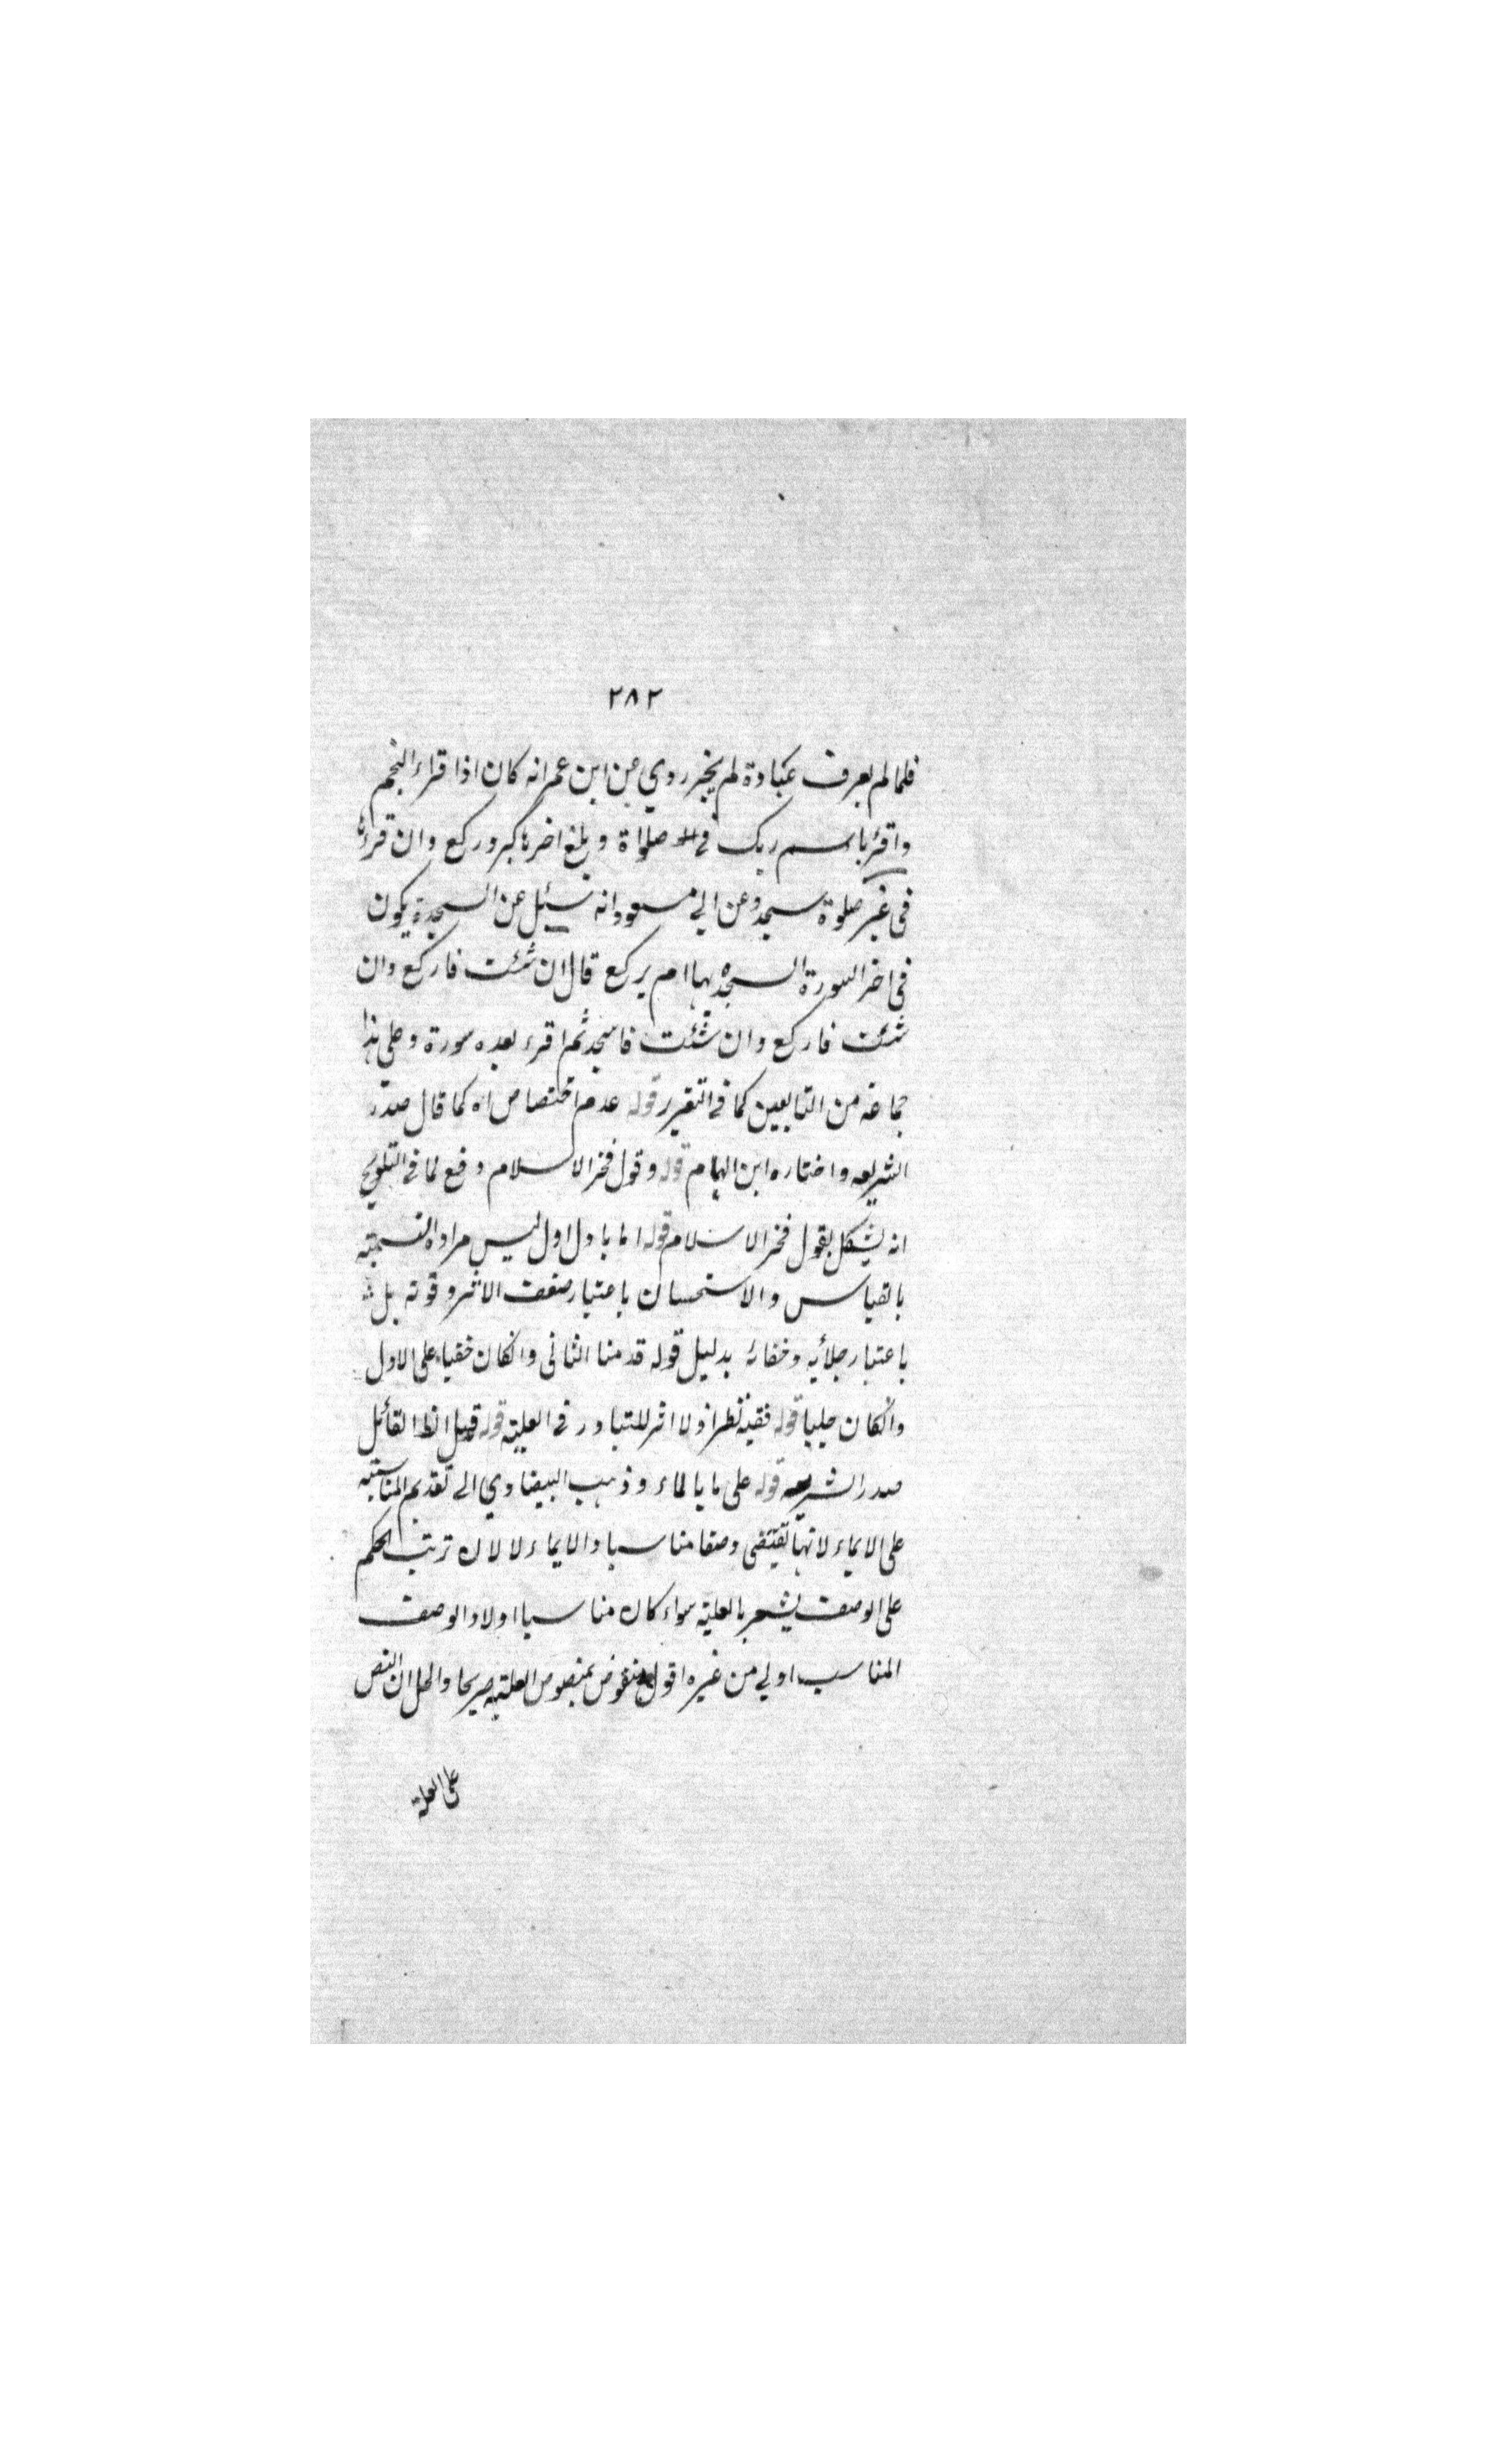 ٢٨٢
فلما لم يعرف عبادة لم يجز روي عن ابن عمر انه كان اذا قراء النجم
واقرء باسم ربك في صلواة وبلغ اخرها كبر وركع وان قرءها
في غير صلوة سجد وعن ابي مسعود انه سئيل عن السجدة يكون
في اخر السورة السجد بها ام يركع قال ان شئت فاركع وان
شئت فاركع وان شئت فاسجد ثم اقرء بعده سورة وعلى هذا
جماعة من التابعين كما في التقرير قوله عدم اختصاص اه كما قال صدر
الشريعه واختاره ابن الهمام قوله وقول فخر الاسلام دفع لما في التلويح
انه يشكل بقول فخر الاسلام قوله اما باول اول ليس مراده القسمة
بالقياس والاستحسان باعتبار ضعف الاثر وقوته بل
باعتبار جلائيه وخفائه بدليل قوله قدمنا الثاني وانكان خفيا على الاول
وانكان جليا قوله فقيه نظر اذ لا اثر للتبادر في العلية قوله قيل القائل
صدر الشريعه قوله على ما بالماء وذهب البيضاوي الى تقديم المناسبة
على الايماء لانها تقتضى وصفا مناسبا والايماء لا لان ترتب الحكم
على الوصف يشعر بالعلية سواء كان مناسبا اولا والوصف
المناسب اولي من غيره اقول منقوض بمنصوص العلية صريحا والحل ان النص
على العلة